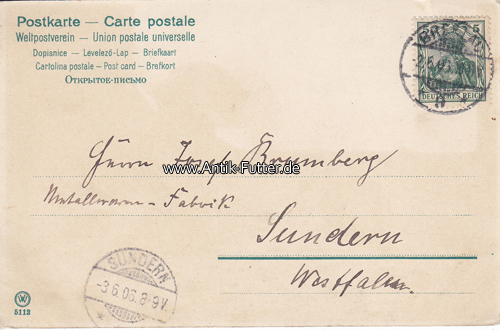 Postkarte — Carte postale
Weltpostverein — Union postale universelle
Dopisnice — Levelező-Lap — Briefkaart
Cartolina postale — Post card — Brefkort
Открытое-письмо
5
DEUTSCHES REICH
Herrn Josef Brumberg
www.Antik-Futter.de
Metallwaren-Fabrik
Sundern
Westfalen.
SUNDERN
-3.6.06.8-9V.
5113